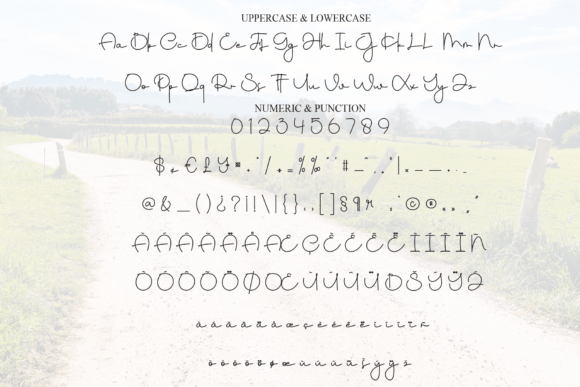 UPPERCASE & LOWERCASE
Aa Bb Cc Dd Ee Ff Gg Hh Ii Jj Kk Ll Mm Nn
Oo Pp Qq Rr Ss Tt Uu Vv Ww Xx Yy Zz
NUMERIC & PUNCTION
0123456789
@&_()¿?!|\|{}..[]§¶
ÀÁÂÃÄÅÆÇÈÉÊËÌÍÎÏÑ
ÒÓÔÕÖØŒÙÚÛÜÐŠÝŸŽ
àáâãäåæçèéêëìíîïñ